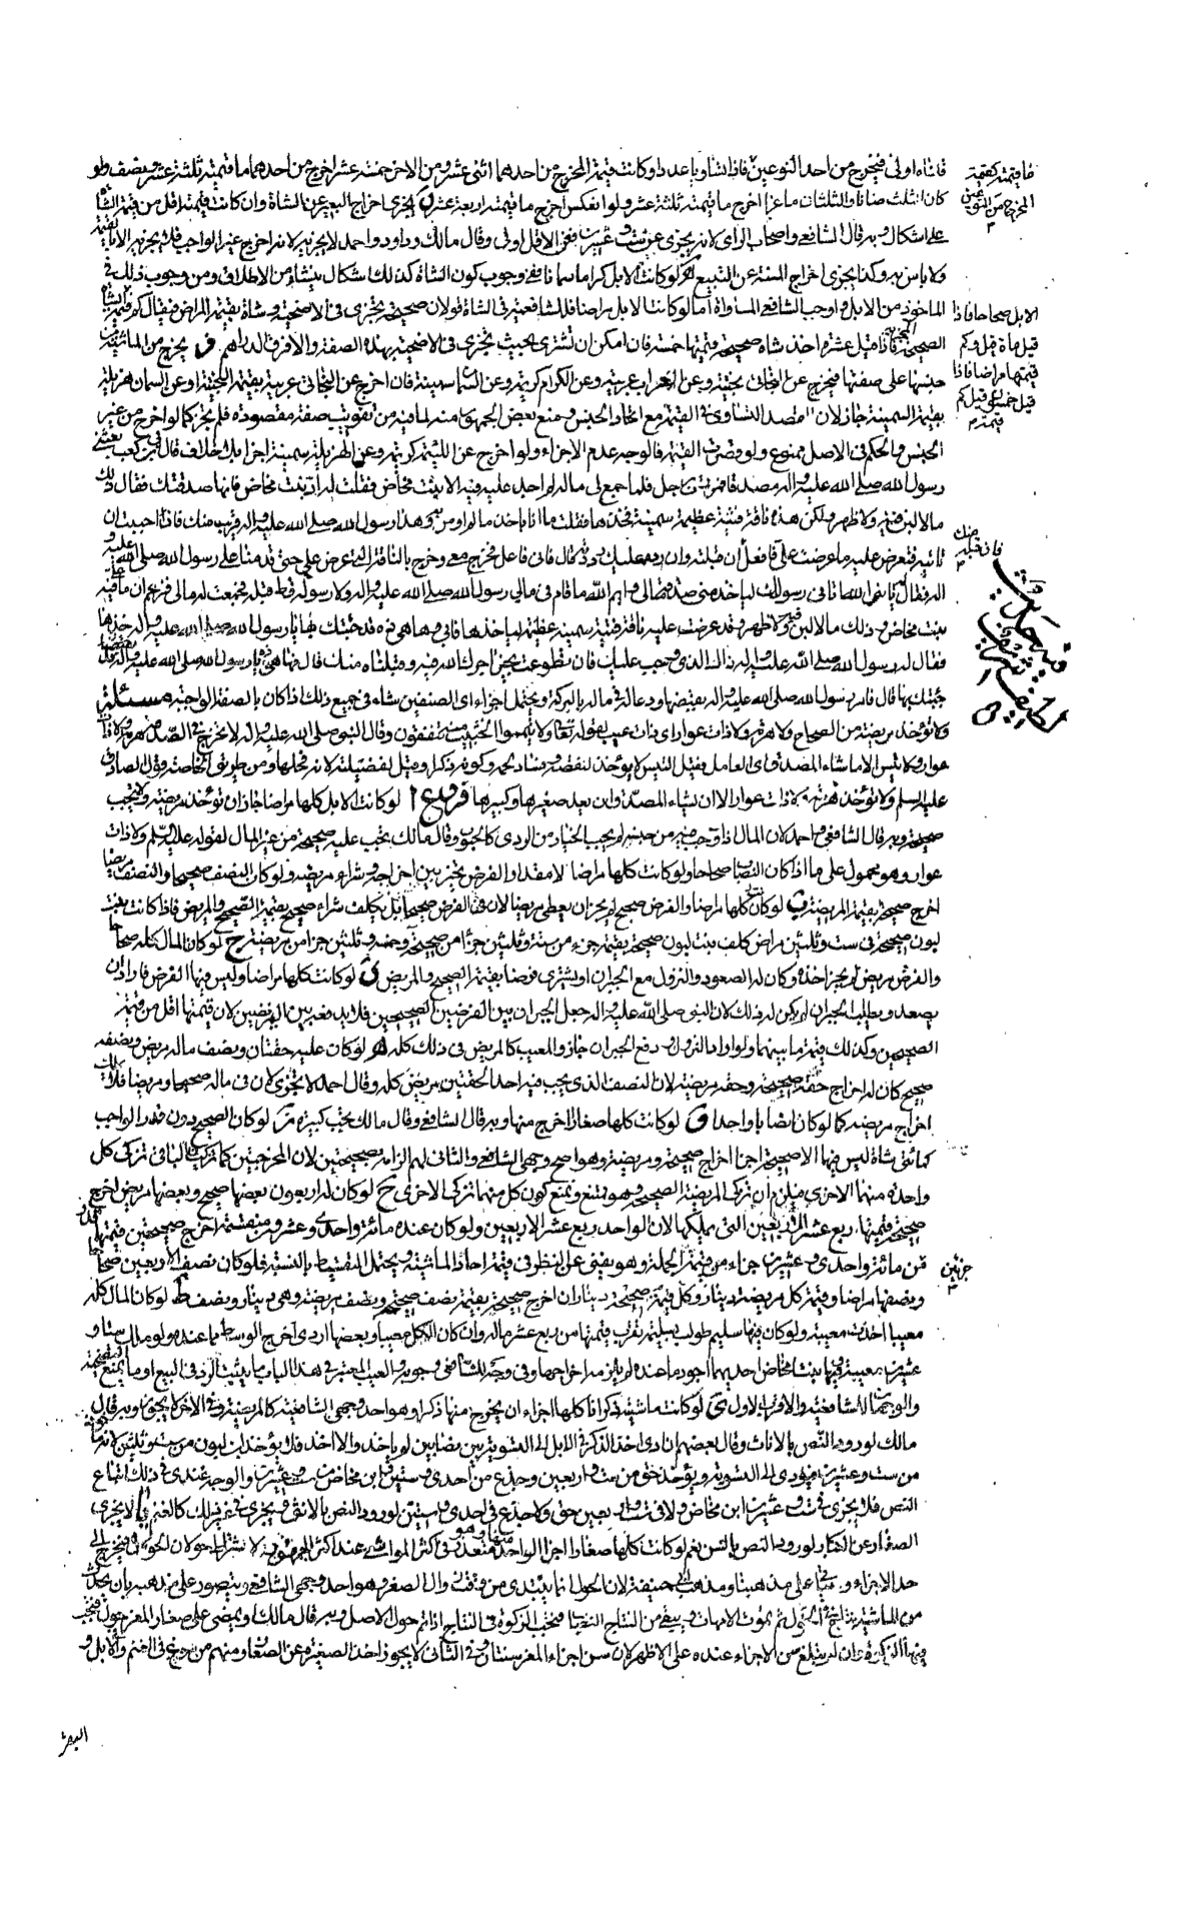 فاشاه اولى فيخرج من احد النوعين فاذا تساويا عددا وكانت قيمة المخرج من احدهما اثنى عشر ومن الاخر خمسة عشر اخرج من احدهما ما قيمته ثلثة عشر ونصف ولو
كان الثلث ضانا والثلثان ماعزا اخرج ما قيمته ثلثة عشر ولو انعكس اخرج ما قيمته اربعة عشر يجزى اخراج البعير عن الشاة وان كانت قيمته اقل من قيمة الشاة
على اشكال وبه قال الشافعي واصحاب الراى لانه يجزى عن ست وعشرين فعن الاقل اولى وقال مالك وداود واحمد لا يجزيه لانه اخرج غير الواجب فلا يجزيه الا بالقيمة
ولا باس به وكذا يجزى اخراج المسنة عن التبيع لو كانت الابل كراما سمانا ففي وجوب كون الشاة كذلك اشكال ينشاء من الاطلاق ومن وجوب ذلك في
الماخوذ من الابل واوجب الشافعي المساواة اما لو كانت الابل مراضا فللشافعية في الشاة قولان صحيحة تجزى في الاضحية وشاة بقيمة المراض فيقال كم قيمة
الصحيحة فاذا قيل عشرة اخذ شاة صحيحة قيمتها خمسة فان امكن ان تشترى بحيث تجزى في الاضحية بهذه الصفة والا فرق الدراهم و يخرج من الماشية من
جنسها على صفتها فيخرج عن البخاتى بختية وعن العراب عربية وعن الكرام كريمة وعن السمان سمينة فان اخرج عن البخاتى عربية بقيمة البختية او عن السمان هزيلة
بقيمة السمينة جاز لان القصد التساوى في القيمة مع اتحاد الجنس ومنع بعض الجمهور منه لما فيه من تفويت صفة مقصودة فلم يجز كما لو اخرج من غير
الجنس والحكم في الاصل ممنوع ولو نقصت القيمة فالوجه عدم الاجزاء ولو اخرج عن اللئيمة كريمة وعن الهزيلة سمينة اجزا بلا خلاف قال ابى بن كعب بعثنى
رسول الله صلى الله عليه واله مصدقا فمررت برجل فلما جمع لى ماله لم اجد عليه فيه الا بنت مخاض فقلت له اد بنت مخاض فانها صدقتك فقال ذلك
ما لا لبن فيه ولا ظهر ولكن هذه ناقة فتية عظيمة سمينة فخذها فقلت ما انا باخذ ما لم اومر به وهذا رسول الله صلى الله عليه واله قريب منك فاذا احببت ان
تاتيه فتعرض عليه ما عرضت على فافعل فان قبلته وان رده عليك رددته قال فانى فاعل فخرج معى وخرج بالناقة التى عرض على حتى قدمنا على رسول الله صلى الله عليه و
اله فقال يا نبي الله اتانى رسولك لياخذ منى صدقة مالى وايم الله ما قام في مالي رسول الله صلى الله عليه واله ولا رسوله قط قبله فجمعت له مالى فزعم ان ما فيه
بنت مخاض وذلك ما لا لبن فيه ولا ظهر وقد عرضت عليه ناقة فتية سمينة عظيمة لياخذها فابى وها هى ذه قد جئتك بها يا رسول الله صلى الله عليه واله خذها
فقال له رسول الله صلى الله عليه واله ذاك الذى وجب عليك فان تطوعت بخير اجرك الله فيه وقبلناه منك قال فها هى ذه يا رسول الله صلى الله عليه واله قد
جئتك بها قال فامر رسول الله صلى الله عليه واله بقبضها ودعا له في ماله بالبركة ويحتمل اجزاء اى الصنفين شاء في جميع ذلك اذا كان بالصفة الواجبة مسئلة
ولا تؤخذ مريضة من الصحاح ولا هرمة ولا ذات عوار اى ذات عيب لقوله تعالى ولا تيمموا الخبيث منه تنفقون وقال النبي صلى الله عليه واله لا تخرج في الصدقة هرمة ولا ذات
عوار ولا تيس الا ما شاء المصدق اى العامل فقيل التيس لا يؤخذ لنقصه وفساد لحمه وكونه ذكرا وقيل لفضيلته لانه فحلها ومن طريق الخاصة قول الصادق
عليه السلم ولا تؤخذ هرمة ولا ذات عوار الا ان يشاء المصدق وان يعد صغيرها وكبيرها فروع ا لو كانت الابل كلها مراضا جاز ان تؤخذ مريضة ولا تجب
صحيحة وبه قال الشافعي واحمد لان المال اذا وجب فيه من جنسه لم يجب الخيار من الردى كالحبوب وقال مالك يجب عليه صحيحة من غير المال لقوله عليه السلم ولا ذات
عوار وهو محمول على ما اذا كان النصاب صحاحا ولو كانت كلها مراضا لا مقدار الفرض تخير بين اخراجه وشراء مريضة ولو كان النصف صحيحا والنصف مريضا
اخرج صحيحة بقيمة المريضة ب لو كان كلها مراضا والفرض صحيح لم يجز ان يعطى مريضا لان في الفرض صحيحا بل يكلف شراء صحيح بقيمة الصحيح والمريض فاذا كانت بنت
لبون صحيحة في ست وثلثين مراض كلف بنت لبون صحيحة بقيمة جزء من ستة وثلثين جزءا من صحيحة وخمسة وثلثين جزءا من مريضة ج لو كان المال كله صحاحا
والفرض مريض لم يجز اخذه وكان له الصعود والنزول مع الجبران او يشترى فرضا بقيمة الصحيح والمريض د لو كانت كلها مراضا وليس فيها الفرض فاراد ان
يصعد ويطلب الجبران لم يكن له ذلك لان النبي صلى الله عليه واله جعل الجبران بين الفرضين الصحيحين فلا يفيد معه بين المريضين لان قيمتها اقل من قيمة
الصحيحين وكذلك قيمة ما بينهما ولو اراد النزول ودفع الجبران جاز والمعيب كالمريض في ذلك كله ه لو كان عليه حقتان ونصف ماله مريض ونصفه
صحيح كان له اخراج حقة صحيحة وحقة مريضة لان النصف الذى يجب فيه احد الحقتين مريض كله وقال احمد لا تجزى لان في ماله صحيحا ومريضا فلا يملك
اخراج مريضة كما لو كان نصابا واحدا و لو كانت كلها صغارا اخرج منها وبه قال الشافعي وقال مالك تجب كبيرة ز لو كان الصحيح دون قدر الواجب
كمائتى شاة ليس فيها الا صحيحة اجزا اخراج صحيحة ومريضة وهو اصح وجهى الشافعي والثانى لهم الزامه بصحيحتين لان المخرجتين كما تزكيان الباقى تزكى كل
واحدة منهما الاخرى فيلزم ان تزكى المريضة الصحيحة وهو ممتنع ونمنع كون كل منهما تزكى الاخرى ح لو كان له اربعون بعضها صحيح وبعضها مريض اخرج
صحيحة قيمتها ربع عشر الاربعين التى يملكها لان الواحد ربع عشر الاربعين ولو كان عنده مائة واحدى وعشرون منقسمة اخرج صحيحتين قيمتهما قدر
من مائة واحدى وعشرين جزء من قيمة الجملة وهو يغنى عن النظر في قيمة احاد الماشية ويحتمل التقسيط بالنسبة فلو كان نصف الاربعين صحاحا
ونصفها مراضا وقيمة كل مريضة دينار وكل قيمة صحيحة ديناران اخرج صحيحة بقيمة نصف صحيحة ونصف مريضة وهى دينار ونصف ط لو كان المال كله
معيبا اخذت معيبة ولو كان فيها سليم طولب بسليمة تقرب قيمتها من ربع عشر ماله وان كان الكل معيبا وبعضها اردى اخرج الوسط مما عنده ولو ملك ستا و
عشرين معيبة فيها بنتا مخاض احديهما اجود ما عنده لم يلزمه اخراجها وفي وجه للشافعي وجوبه والعيب المعتبر في هذا الباب ما يثبت الرد في البيع او ما يمنع التضحية
والوجهان للشافعية والاقرب الاول ى لو كانت ماشيته ذكرانا كلها اجزاه ان يخرج منها ذكرا وهو احد وجهى الشافعية كالمريضة وفي الاخر لا يجوز وبه قال
مالك لورود النص بالاناث وقال بعضهم ان ادى اخذ الذكر في الابل الى التسوية بين نصابين لم ياخذ والا اخذ فلا يؤخذ ابن لبون من ست وثلثين لانه ماخوذ
من ست وعشرين فيؤدى الى التسوية ويؤخذ حق من ست واربعين وجذع من احدى وستين وابن مخاض من ست وعشرين والوجه عندى في ذلك اتباع
النص فلا يجزى في ست وعشرين ابن مخاض ولا في ست واربعين حق ولا جذع في احدى وستين لورود النص بالانثى ويجزى في غير ذلك كالغنم يا لا يجزى
الصغار عن الكبار لورود النص بالسن نعم لو كانت كلها صغارا اجزا الواحد منها وهو متعذر في اكثر المواشى عند اكثر الجمهور لاشتراط الحول لان الحول فيخرج الى
حد الاجزاء ويبنى على مذهبنا ومذهب ابى حنيفة لان الحول انما يبتدى من وقت زوال الصغر وهو احد وجهى الشافعي ويتصور على مذهبه بان يحدث
من الماشية نتاج في الحول ثم تموت الامهات ويبقى من النتاج النصاب فتجب الزكوة في النتاج اذا تم حول الاصل وبه قال مالك او يمضى على صغار المعز حول فتجب
فيها الزكوة وان لم تبلغ سن الاجزاء عنده على الاظهر لان سن اجزاء المعز سنتان وفي الثانى لا يجوز اخذ الصغيرة عن الصغار ومنهم من جوز في الغنم والابل و
فما قيمته كقيمة
المخرج من النوعين
الابل صحاحا فاذا
قيل مأة قيل وكم
قيمتها مراضا فاذا
قيل خمسون قيل كم
قيمة
منك
فان قبله
جزئين
البقر